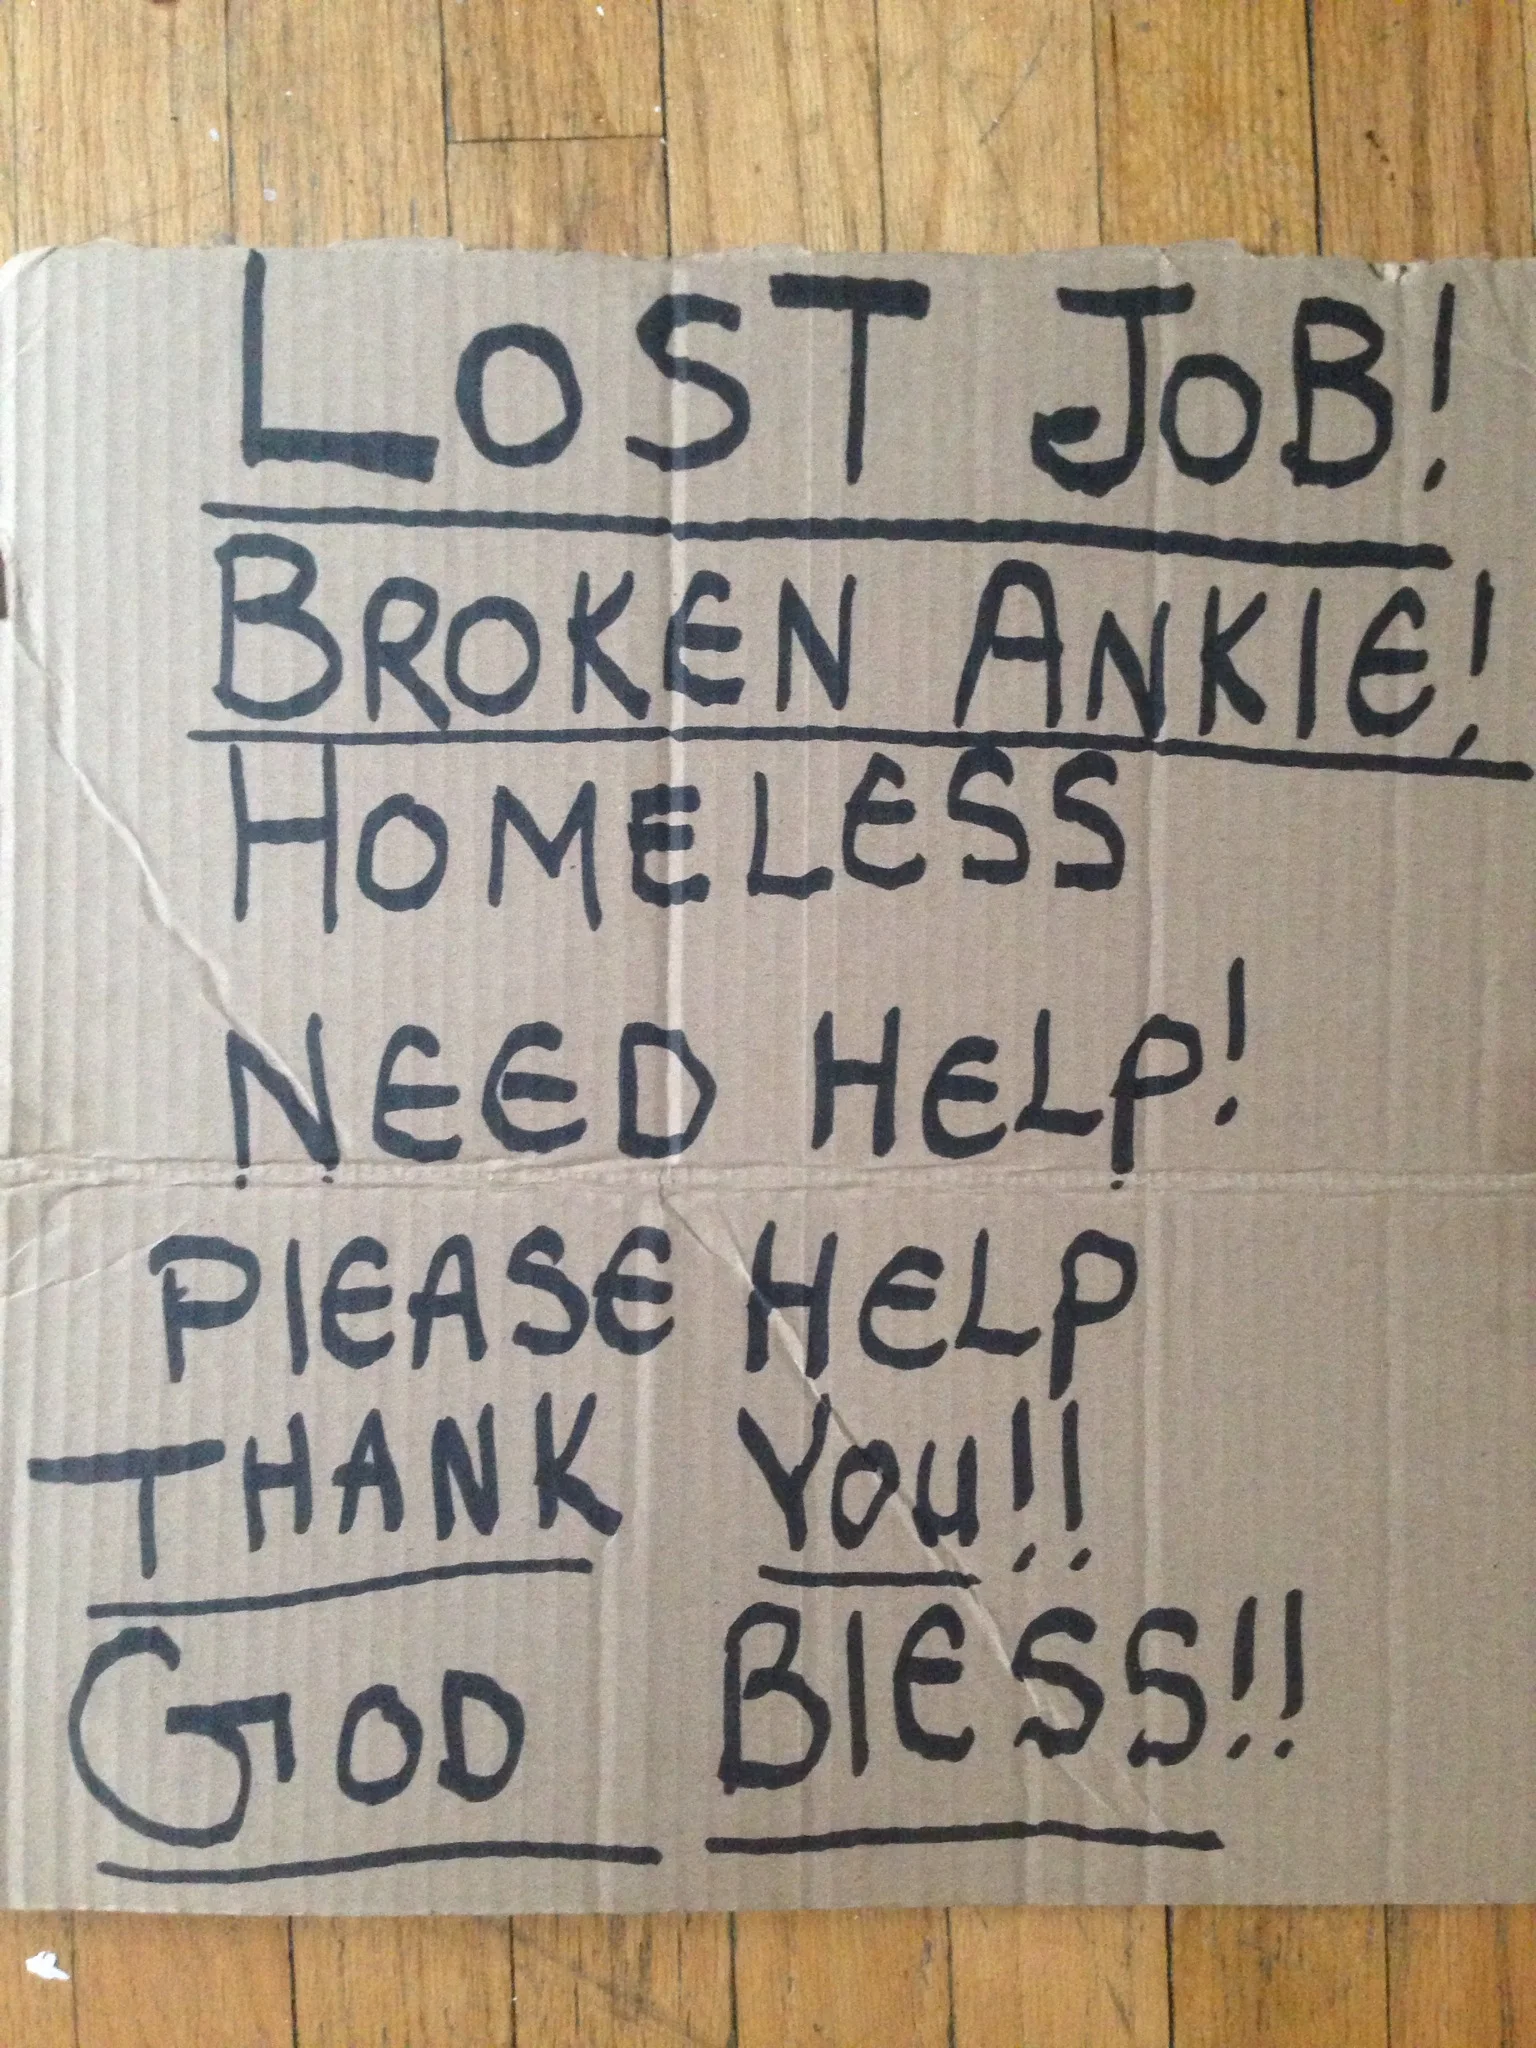 LOST JOB!
BROKEN ANKlE!
HOMELESS
NEED HELP!
PlEASE HELP
THANK YOU!!
GOD BlESS!!